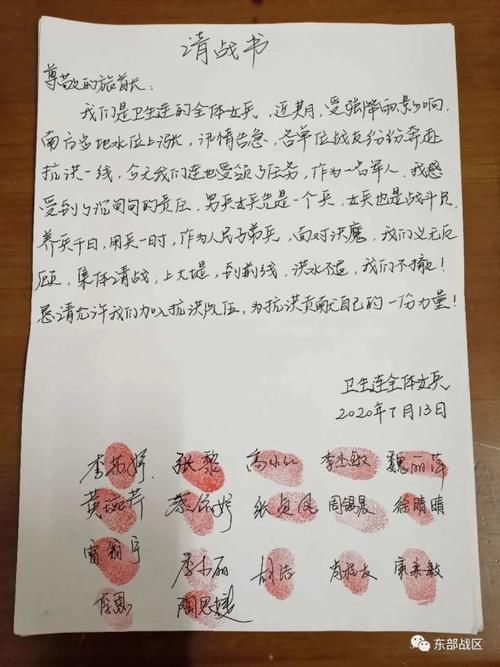 请战书
尊敬的旅首长：
我们是卫生连的全体女兵，近期，受强降雨影响，
南方多地水位上涨，汛情告急，各单位战友纷纷奔赴
抗洪一线，今天我们连也受领了任务，作为一名军人，我感
受到了沉甸甸的责任，男兵女兵先是一个兵，女兵也是战斗员，
养兵千日，用兵一时，作为人民子弟兵，面对洪魔，我们义无反
顾，集体请战，上大堤，到前线，洪水不退，我们不撤！
恳请允许我们加入抗洪队伍，为抗洪贡献自己的一份力量！
卫生连全体女兵
2020年7月13日
张黎 魏丽萍
周锡晨 徐晴晴
季小丽 胡洁
陶思婕
东部战区